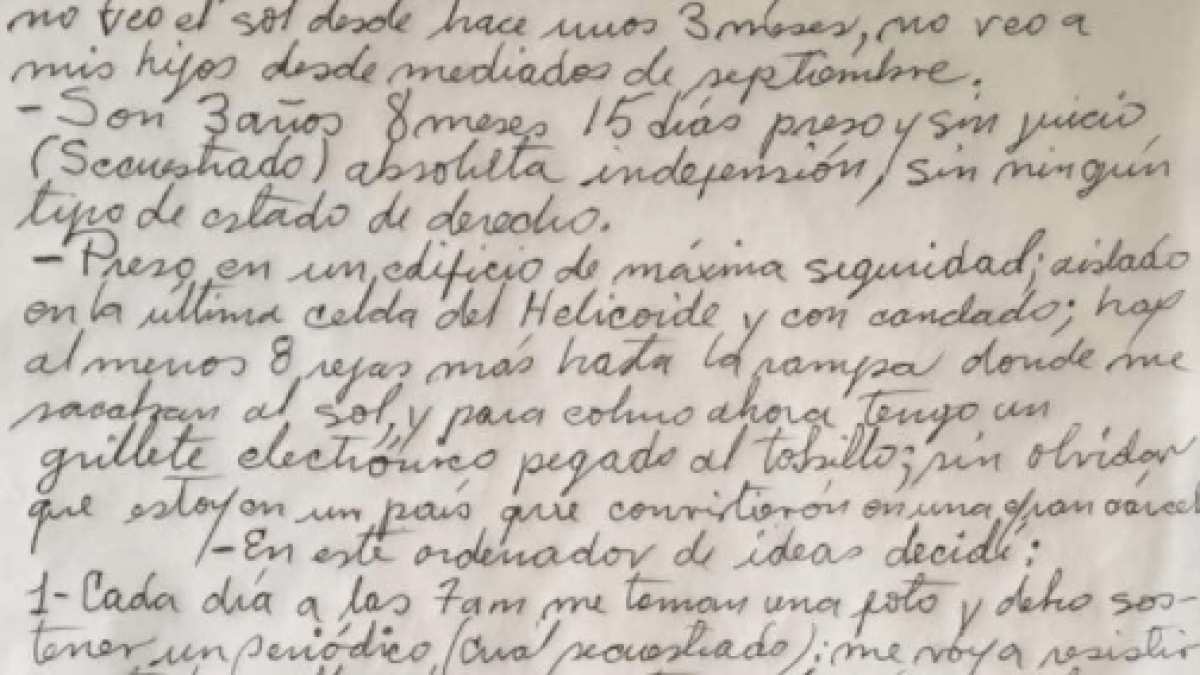 no veo el sol desde hace unos 3 meses, no veo a
mis hijos desde mediados de septiembre.
- Son 3 años 8 meses 15 días preso y sin juicio
(Secuestrado) absoluta indefensión, sin ningún
tipo de estado de derecho.
- Preso en un edificio de máxima seguridad; aislado
en la última celda del Helicoide y con candado; hay
al menos 8 rejas más hasta la rampa donde me
sacaban al sol, y para colmo ahora tengo un
grillete electrónico pegado al tobillo; sin olvidar
que estoy en un país que convirtierón en una gran cárcel
- En este ordenador de ideas decidí:
1- Cada día a las 7am me toman una foto y debo sos-
tener un periódico (cual secuestrado); me voy a resistir